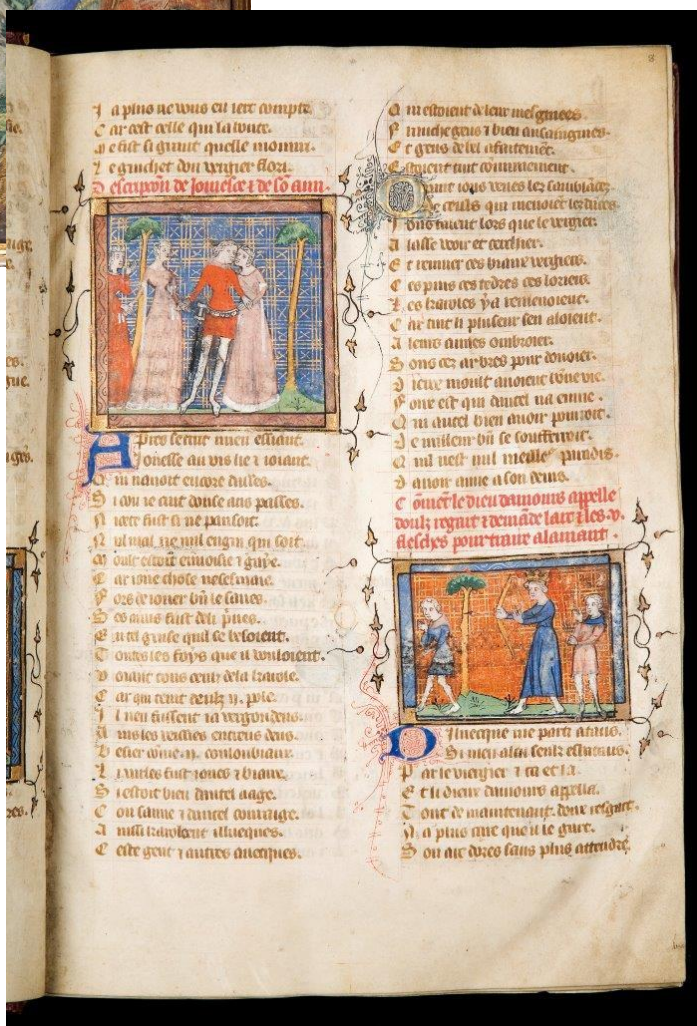 8
J a plus ne vous en iert compte.
C ar cest celle qui la
M e fist si grant quelle mouri.
L e guichet dou vergier flori.
D escripcion de Jonesce & de son ami.
A Pres se tint mien essiant.
Jonesse au vis lie & ioiant.
Q ui navoit encore
S i com ie cuit douse ans passes.
N icete fust si ne pensoit.
N ul mal ne nul engin qui soit.
M oult estoit envoisie & gaye.
C ar ione chose ne sesmaie.
F ors de ioner bn le saves.
S es amis fust de li prives.
E n tel guise quil se besoient.
T outes les foys que il vouloient.
V oiant tous ceulz de la karole.
C ar qui tenit deulz ij. pole.
J l nen fussent ia vergondeus.
A ins les veissies entreus deus.
B esier come .ij. couloubiaux.
L i valles fust iones & biaux.
S i estoit bien dautel aage.
C on samie & dautel couraige.
A insi karoloient illueques.
C este gent & autres avecques.
Q ui estoient de leur mesgniees.
F ranche gens & bien ensaingniees.
E t gens de bel afaitement.
E stoient tuit communement.
Q uant ious veues les samblances
D e ceulas qui menoient les dances.
J ous talent lors que le vergier.
A lasse veoir et cerchier.
E t remirer ces biaux vergiers.
C es pins ces cedres ces loriers.
L es karoles ya remenoient.
C ar tuit li pluseur sen aloient.
A leurs amies ombroier.
S ous cez arbres pour donoier.
D ieux moult avoient bone vie.
F ous est qui dautel na envie.
Q ui autel bien avoir pourroit.
D e milleur bn se souffreroit.
Q uil nest nul meilleur paradis.
D avoir amie a son devis.
C oment le dieu damours appelle
doulz regart & demande larc & les .v.
flesches pour traire alamant
D Illuecque me parti atans.
Si men alai seulz esbatans.
P ar le viergier & ca et la.
E t li dieux damours appella.
T out de maintenant. doux resgart.
N a plus cure que il le gart.
S on arc dores sans plus attendre.